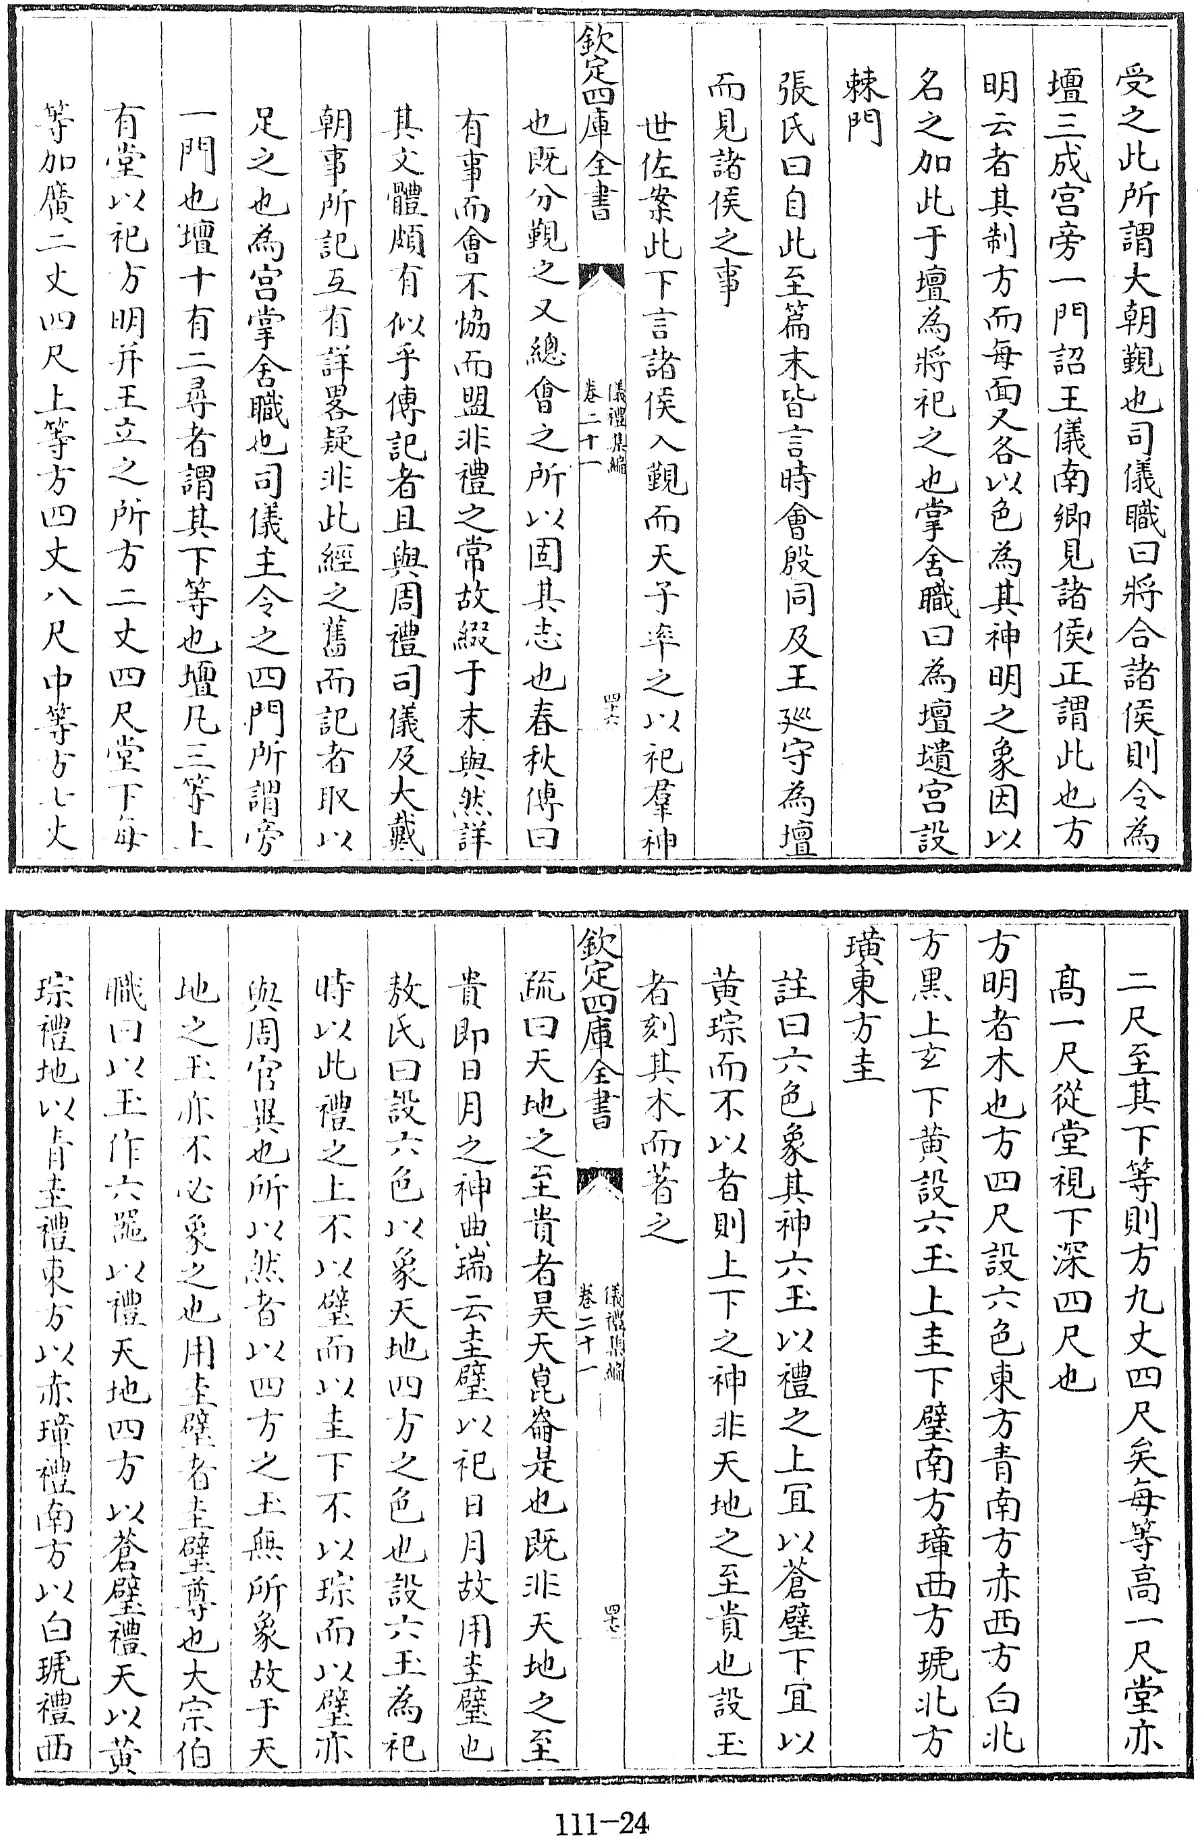 受之此所謂大朝覲也司儀職曰將合諸侯則令為
壇三成宮旁一門詔王儀南鄉見諸侯正謂此也方
明云者其制方而每面又各以色為其神明之象因以
名之加此于壇為將祀之也掌舍職曰為壇壝宮設
棘門
張氏曰自此至篇末皆言時會殷同及王廵守為壇
而見諸侯之事
世佐案此下言諸侯入覲而天子率之以祀羣神
欽定四庫全書
儀禮集編
卷二十一
四十六
也既分覲之又總會之所以固其志也春秋傳曰
有事而會不協而盟非禮之常故綴于末與然詳
其文體頗有似乎傳記者且與周禮司儀及大戴
朝事所記互有詳畧疑非此經之舊而記者取以
足之也為宮掌舍職也司儀主令之四門所謂旁
一門也壇十有二尋者謂其下等也壇凡三等上
有堂以祀方明并王立之所方二丈四尺堂下每
等加廣二丈四尺上等方四丈八尺中等方七丈
二尺至其下等則方九丈四尺矣每等高一尺堂亦
高一尺從堂視下深四尺也
方明者木也方四尺設六色東方青南方赤西方白北
方黑上玄下黄設六玉上圭下璧南方璋西方琥北方
璜東方圭
註曰六色象其神六玉以禮之上宜以蒼璧下宜以
黄琮而不以者則上下之神非天地之至貴也設玉
者刻其木而著之
欽定四庫全書
儀禮集編
卷二十一
四十七
疏曰天地之至貴者昊天崑崙是也既非天地之至
貴即日月之神典瑞云圭璧以祀日月故用圭璧也
敖氏曰設六色以象天地四方之色也設六玉為祀
時以此禮之上不以璧而以圭下不以琮而以璧亦
與周官異也所以然者以四方之玉無所象故于天
地之玉亦不必象之也用圭璧者圭璧尊也大宗伯
職曰以玉作六器以禮天地四方以蒼璧禮天以黄
琮禮地以青圭禮東方以赤璋禮南方以白琥禮西
111-24